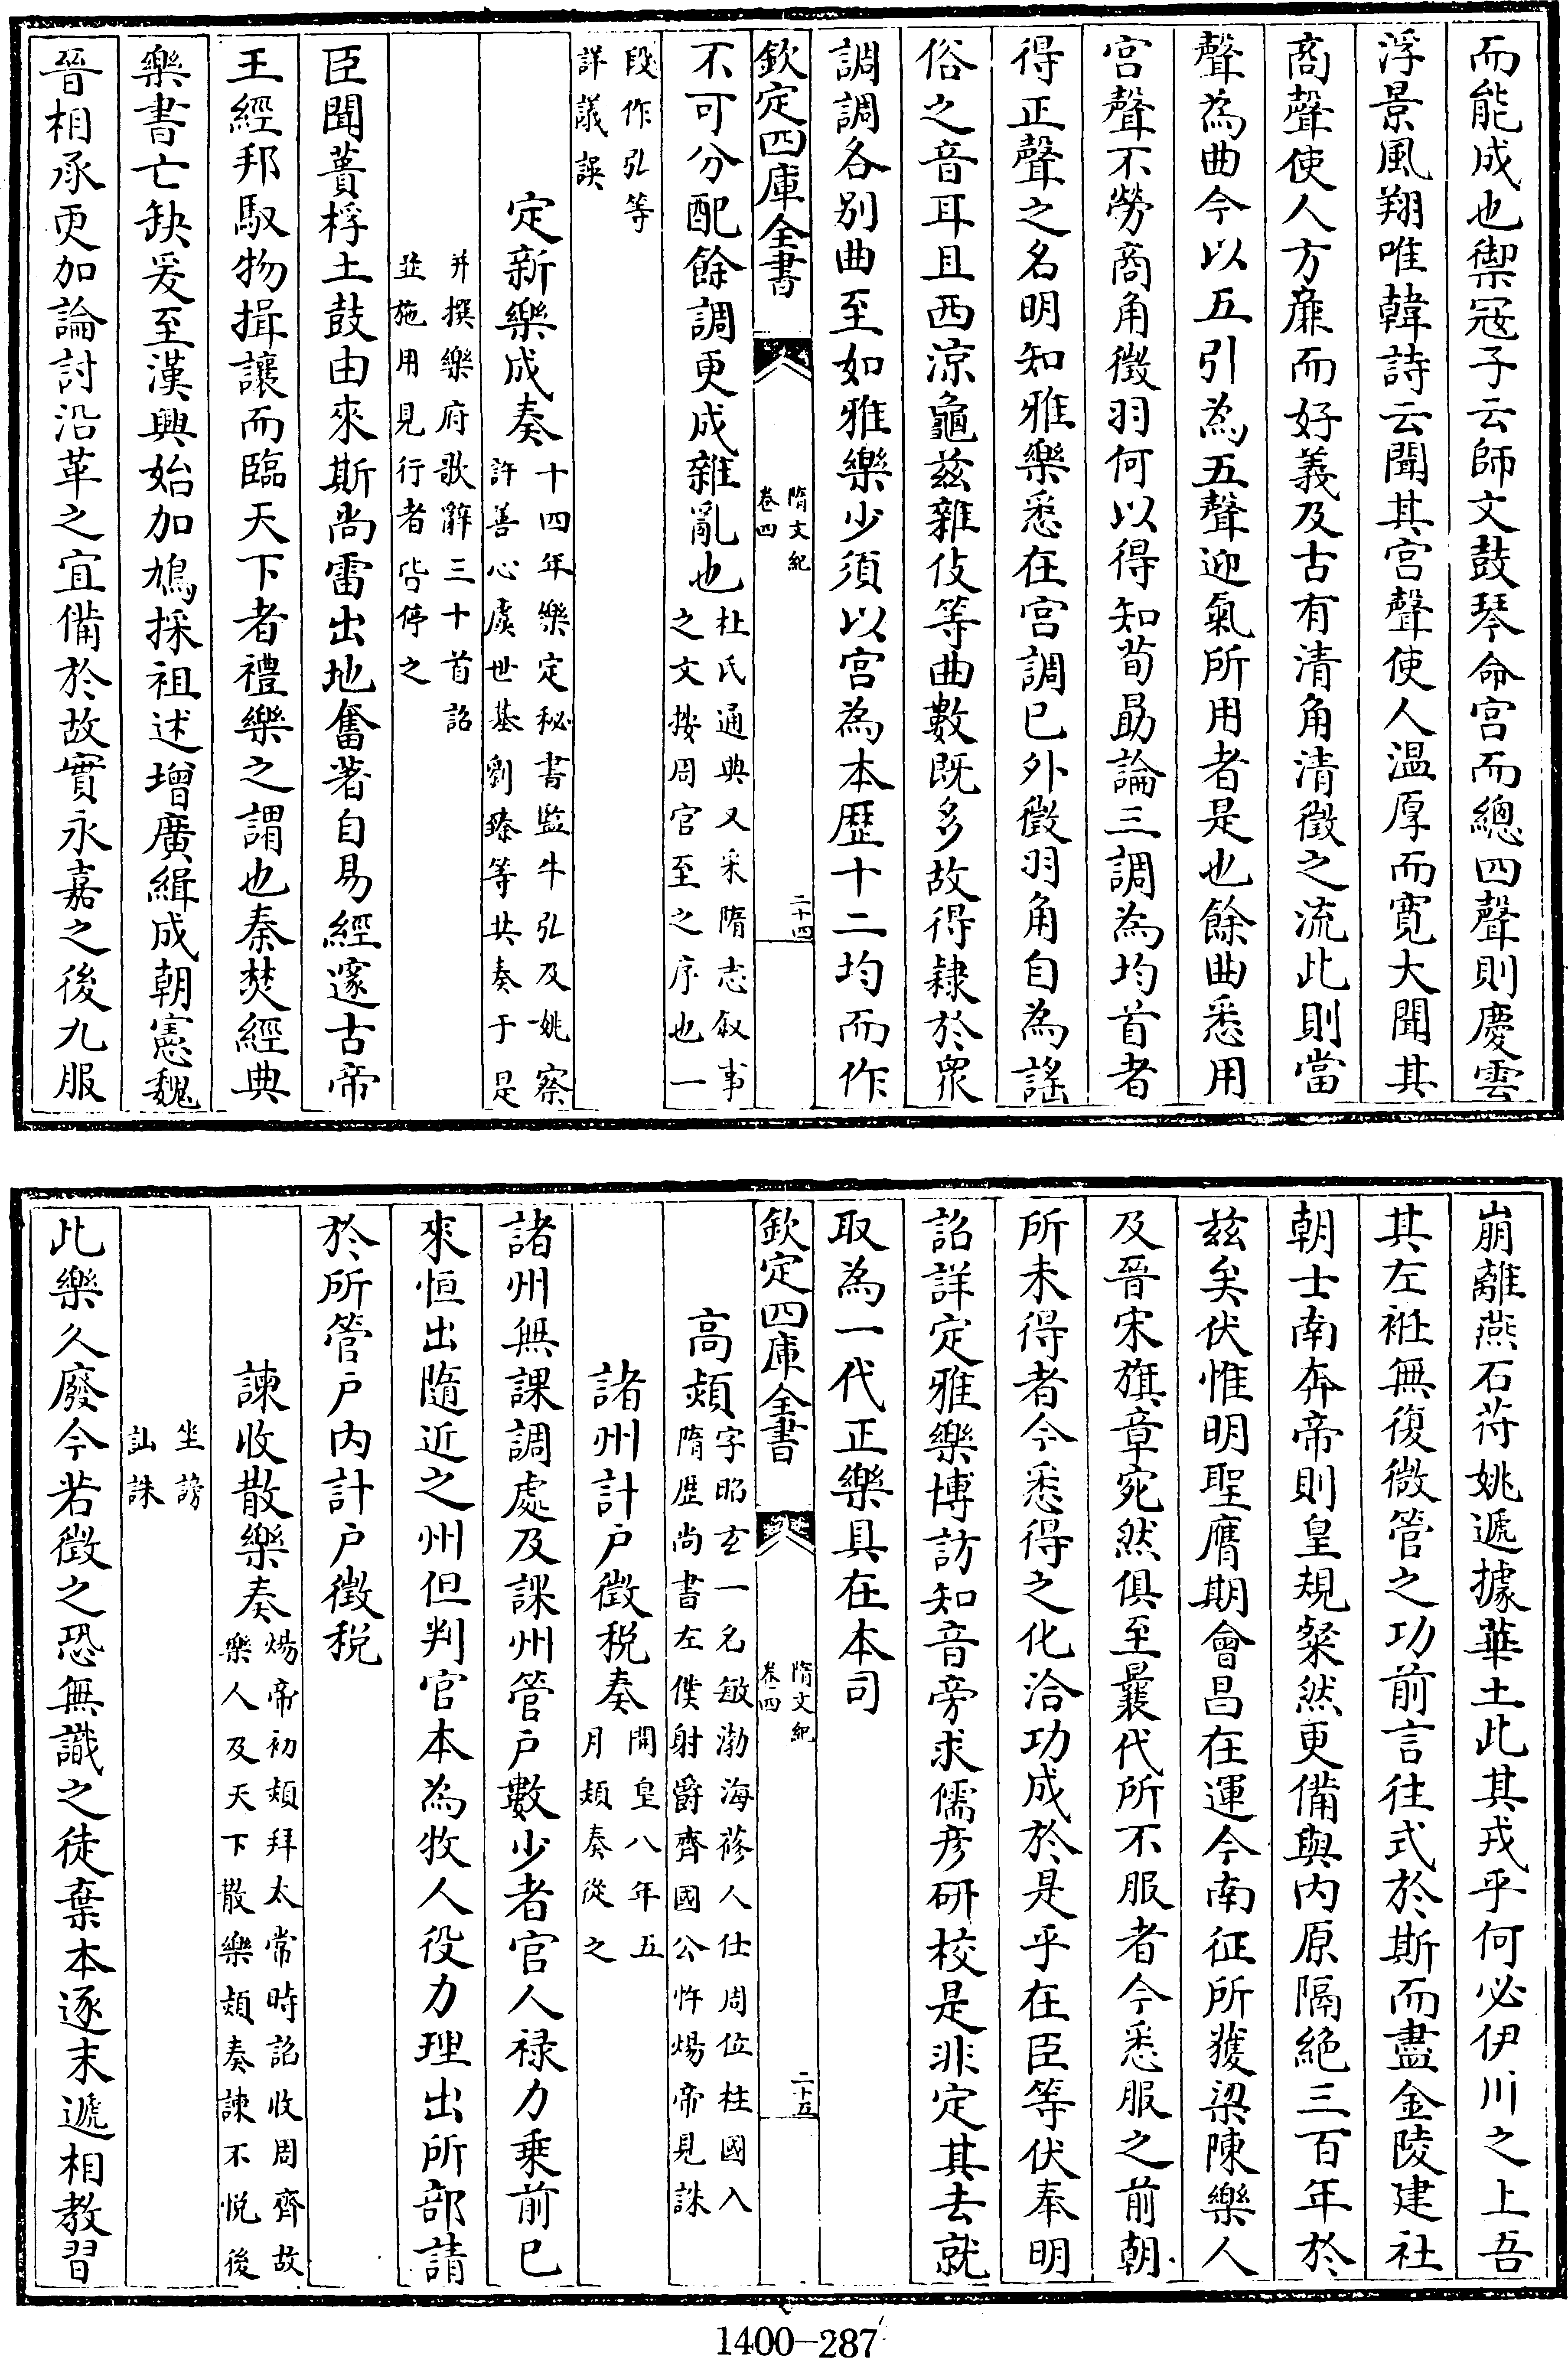 而能成也禦寇子云師文鼓琴命宮而總四聲則慶雲
浮景風翔唯韓詩云聞其宮聲使人溫厚而寬大聞其
商聲使人方廉而好義及古有清角清徵之流此則當
聲為曲今以五引為五聲迎氣所用者是也餘曲悉用
宮聲不勞商角徵羽何以得知荀勗論三調為均首者
得正聲之名明知雅樂悉在宮調已外徵羽角自為謠
俗之音耳且西涼龜茲雜伎等曲數既多故得隸於眾
調調各別曲至如雅樂少須以宮為本歷十二均而作
欽定四庫全書
隋文紀
卷四
二十四
不可分配餘調更成雜亂也
杜氏通典又采隋志敘事
之文按周官至之序也一
段作弘等
詳議誤
定新樂成奏
十四年樂定秘書監牛弘及姚察
許善心虞世基劉臻等共奏于是
并撰樂府歌辭三十首詔
並施用見行者皆停之
臣聞蕢桴土鼓由來斯尚雷出地奮著自易經邃古帝
王經邦馭物揖讓而臨天下者禮樂之謂也秦焚經典
樂書亡缺爰至漢興始加鳩採祖述增廣緝成朝憲魏
晉相承更加論討沿革之宜備於故實永嘉之後九服
崩離燕石苻姚遞據華土此其戎乎何必伊川之上吾
其左衽無復微管之功前言往式於斯而盡金陵建社
朝士南奔帝則皇規粲然更備與內原隔絕三百年於
茲矣伏惟明聖膺期會昌在運今南征所獲梁陳樂人
及晉宋旗章宛然俱至曩代所不服者今悉服之前朝
所未得者今悉得之化洽功成於是乎在臣等伏奉明
詔詳定雅樂博訪知音旁求儒彥研校是非定其去就
取為一代正樂具在本司
欽定四庫全書
隋文紀
卷四
二十五
高熲
字昭玄一名敏渤海蓨人仕周位柱國入
隋歷尚書左僕射爵齊國公忤煬帝見誅
諸州計戶徵稅奏
開皇八年五
月熲奏從之
諸州無課調處及課州管戶數少者官人祿力乘前已
來恒出隨近之州但判官本為牧人役力理出所部請
於所管戶內計戶徵稅
諫收散樂奏
煬帝初熲拜太常時詔收周齊故
樂人及天下散樂熲奏諫不悅後
坐謗
訕誅
此樂久廢今若徵之恐無識之徒棄本逐末遞相教習
1400-287